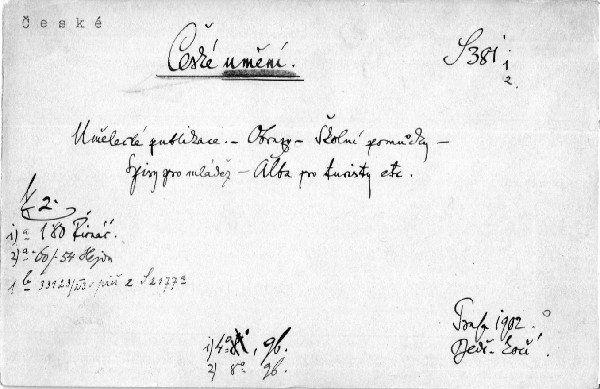 české
České umění.
S 381
1
2.
Umělecké publikace. – Obrazy – Školní pomůcky –
Spisy pro mládež – Alba pro turisty etc.
2.
1) a 180 Firnář.
2) a 60/54 Hejdn
1 b 33123/53 z S 2177a
1) 4°, qb.
2) 8° qb.
Praha 1902.
Bedř. Kočí